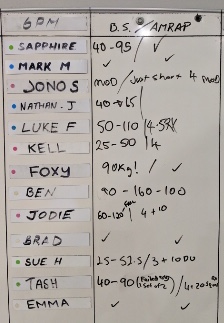 6PM B.S. / AMRAP
SAPPHIRE 40-95 / ✓
MARK M ✓ ✓
JONO S MOD / Just short 4 MOD
NATHAN.J 40
LUKE F 50-110 / 4.5
KELL 25-50 / 4
FOXY 90Kg! / ✓
BEN -160-100
JODIE 60-120 / 4+10
BRAD ✓ ✓
SUE H 25-52.5 / 3+10
TASH 40-90 (Failed set of 2) / 4+20
EMMA ✓ ✓